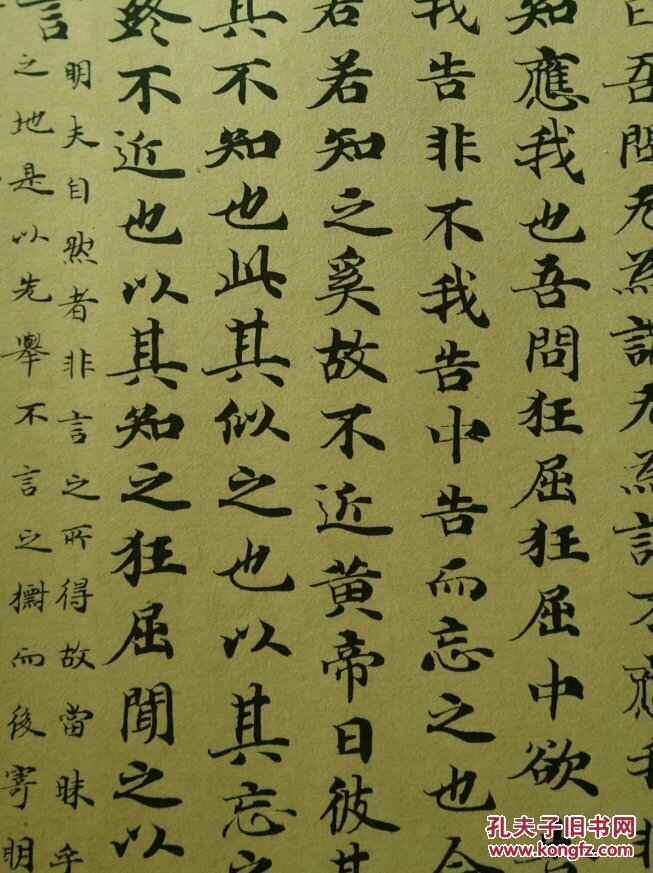 曰吾問无為謂无為謂不應我非
知應我也吾問狂屈狂屈中欲告
我告非不我告中告而忘之也今
若若知之奚故不近黃帝曰彼其
其不知也此其似之也以其忘之
終不近也以其知之狂屈聞之以
言
明夫自然者非言之所得故當昧乎
之地是以先舉不言之而後寄明
孔夫子旧书网
www.kongfz.com